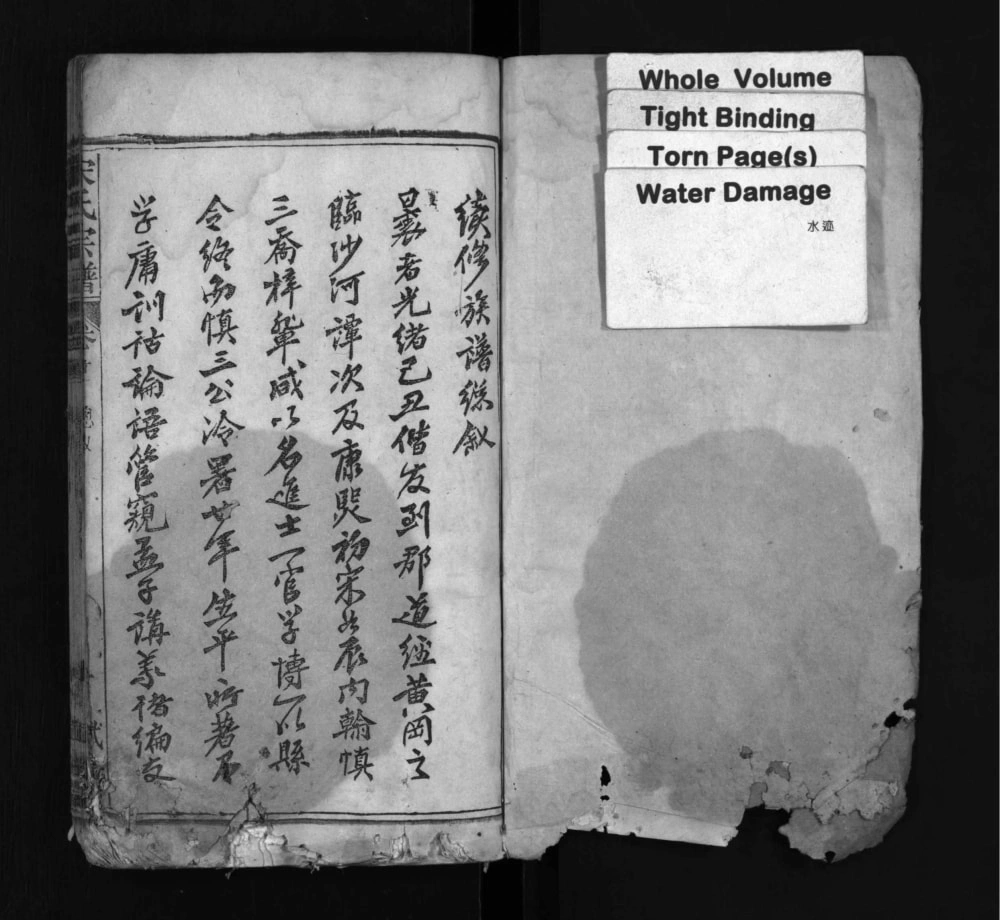 Whole Volume
Tight Binding
Torn Page(s)
Water Damage
水迹
續修族譜總敘
曩者光緒己丑偕友到郡道經黃岡之
臨沙河譚次及康熙初宋如辰內翰慎
三喬梓輩咸以名進士一官学博一以縣
令終而慎三公冷署廿年生平所著有
学庸訓詁論語管窺孟子講義諸編友
宋氏宗譜
卷首 總敘